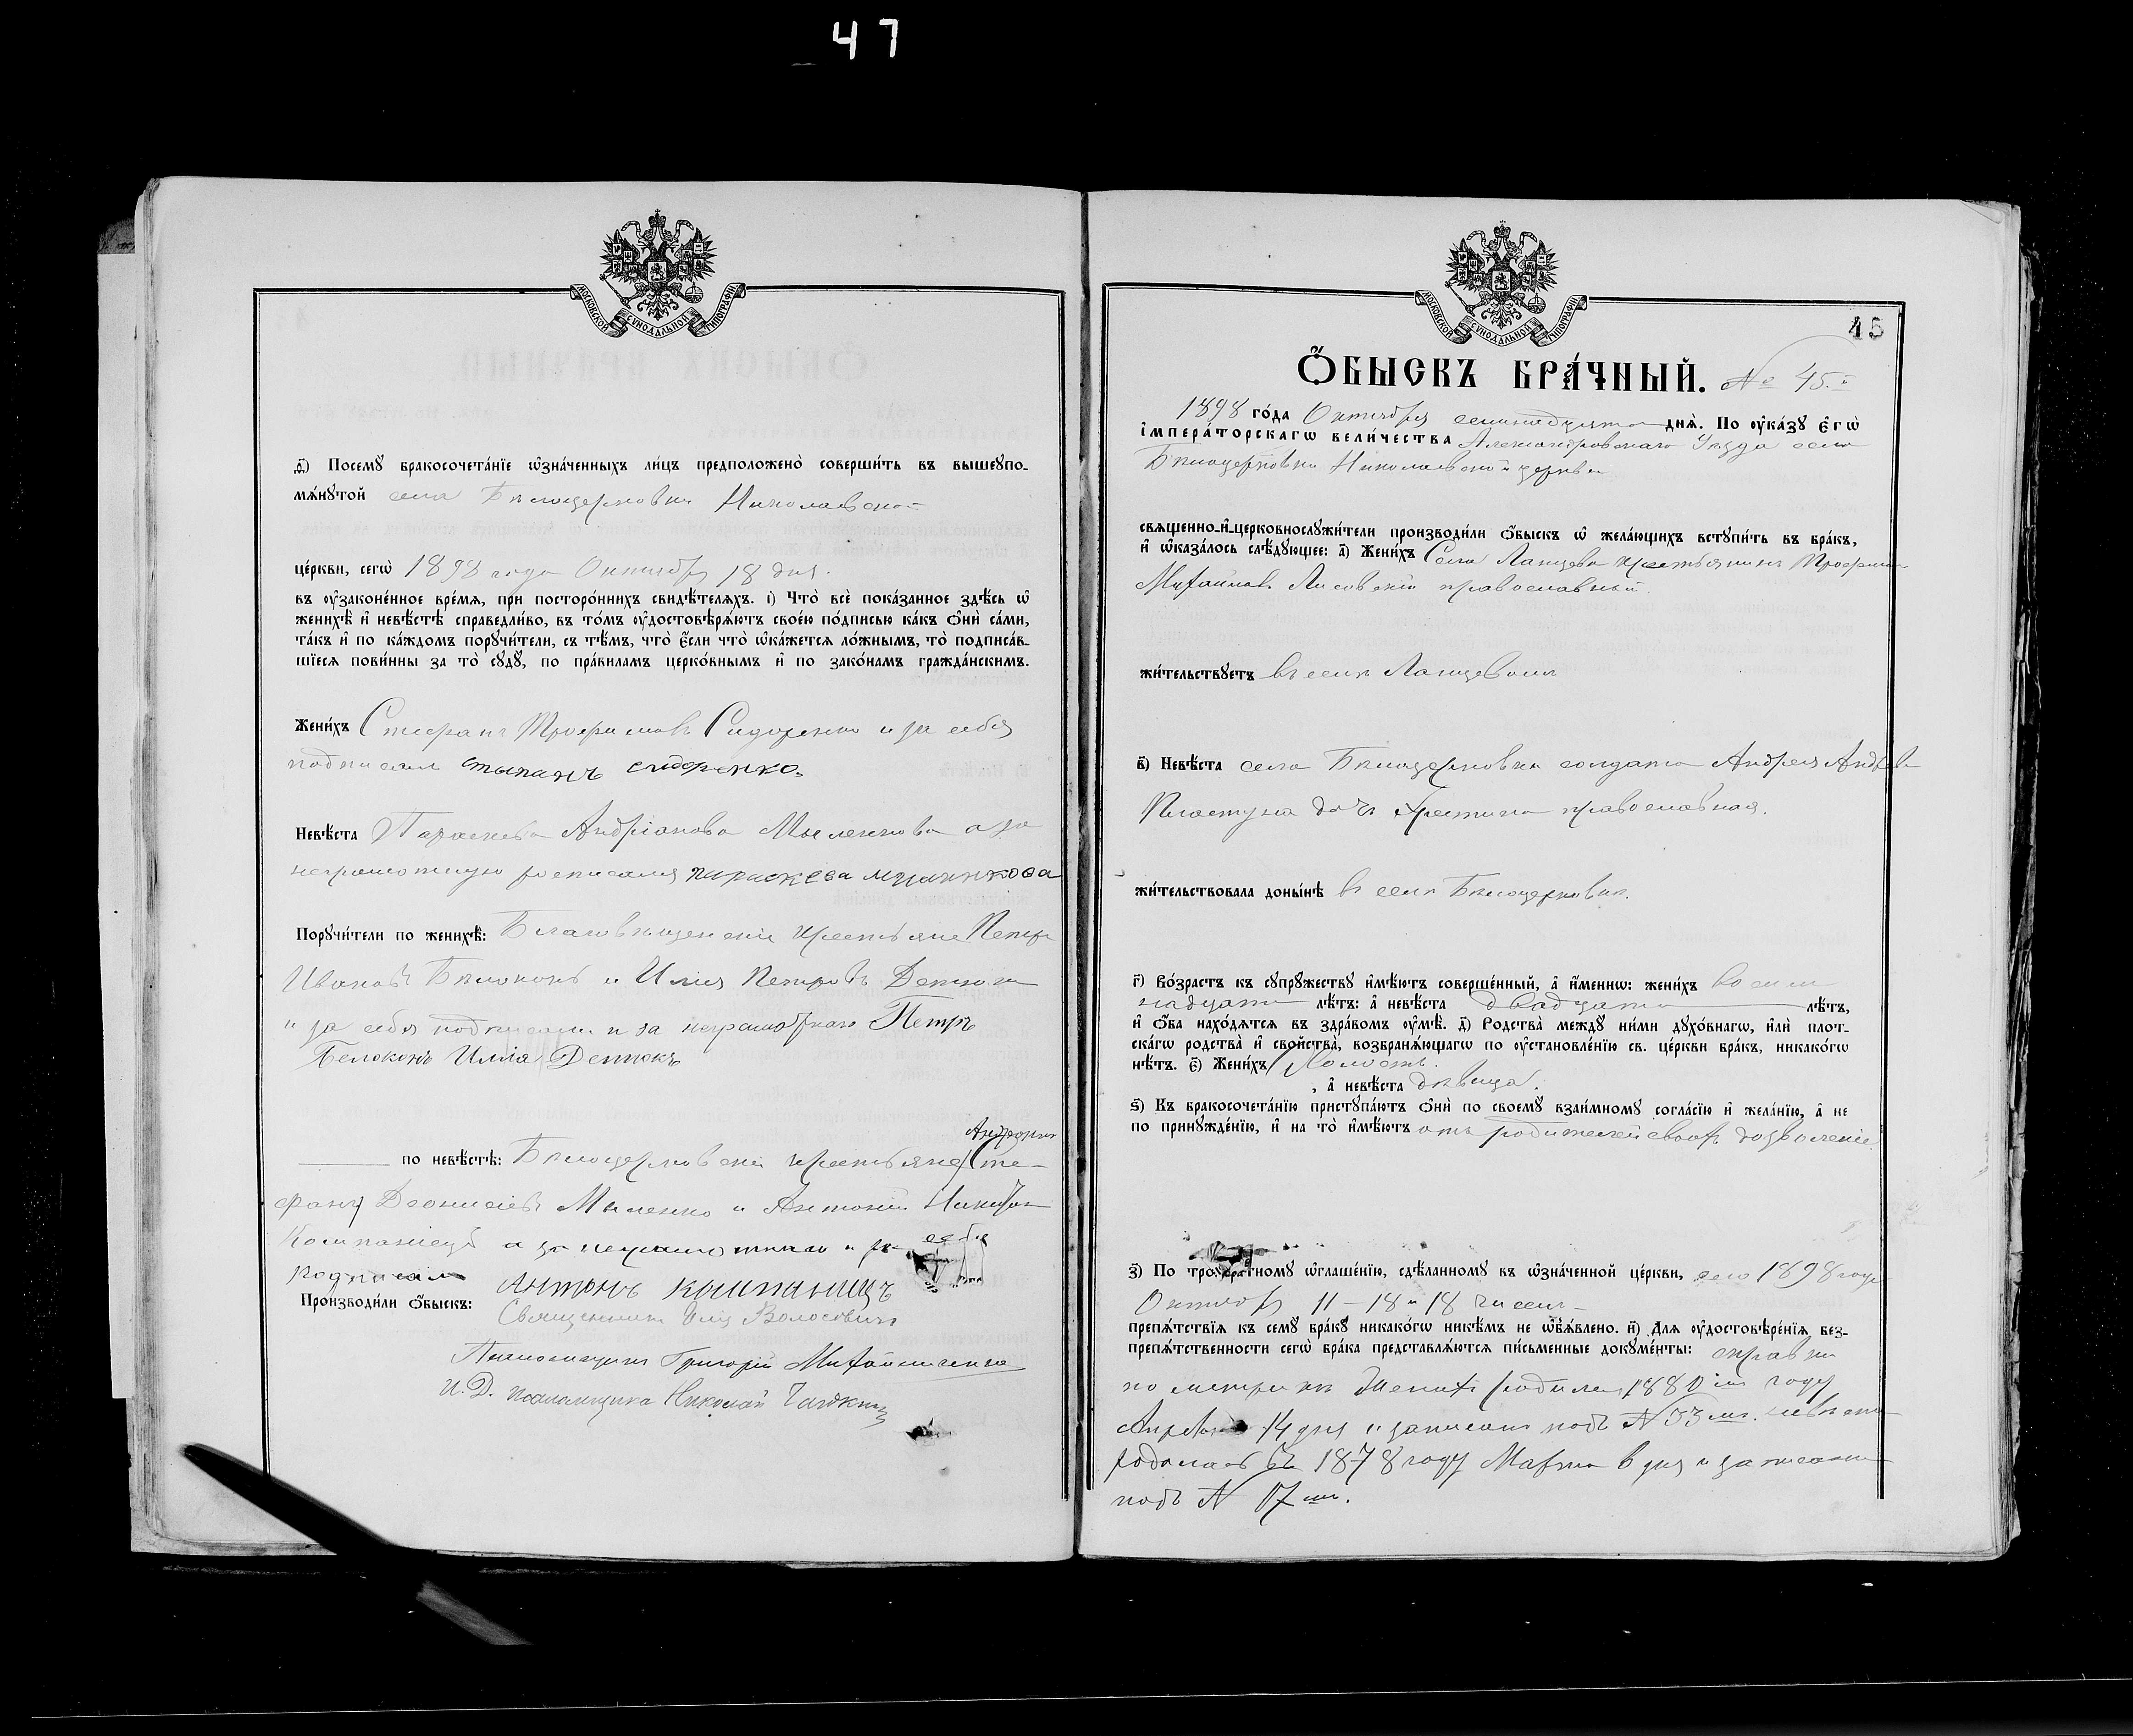 47
МОСКОВСКОЙ СѴНОДАЛЬНОЙ ТИПОГРАФІИ
ѳ҃) Посемꙋ бракосочета́нїе ѡ҆зна́ченныхъ ли́цъ предположено̀ соверши́ть въ вышеꙋпо-
мѧ́нꙋтой села Бѣлоцерковки Николаевской
це́ркви, сегѡ̀ 1898 года Октября 18 дня.
въ ᲂу҆зако́ненное вре́мѧ, при посторо́ннихъ свидѣ́телѧхъ. і҃) Что̀ всѐ пока́занное здѣ́сь ѡ҆
женихѣ̀ и҆ невѣ́стѣ справедли́во, въ то́мъ ᲂу҆достовѣрѧ́ютъ свое́ю по́дписью ка́къ ѻ҆нѝ са́ми,
та́къ и҆ по ка́ждомъ порꙋчи́тели, съ тѣ́мъ, что̀ є҆́сли что̀ ѡ҆ка́жетсѧ ло́жнымъ, то̀ подписа́в-
шїесѧ пови́нны за то̀ сꙋдꙋ̀, по пра́виламъ церко́внымъ и҆ по зако́намъ гражда́нскимъ.
Жени́хъ Стефанъ Трофимовъ Сидоренко и за себя
подписалъ стыпанъ сидоренко.
Невѣ́ста Параскева Андріанова Мыленкова а за
неграмотную росписался параскева
Порꙋчи́тели по женихѣ̀: Благовѣщенскіе крестьяне Петръ
Ивановъ Бѣлоконь и Илія Петровъ Депюкъ
и за себя подписали и за неграмотнаго Петръ
Белоконь Илліа Депюкъ
Андронъ
по невѣ́стѣ: Бѣлоцерковскіе крестьяне Сте-
фанъ Деонисіевъ Мыленко и Антоній Никитинъ
Компаніецъ а за неграмотнаго и за себя
подписалъ Антонъ Кампаниецъ
Производи́ли ѻ҆́быскъ: Священникъ Илія Волосевичъ
Псаломщикъ Григорій Михайличенко
И. Д. псаломщика Николай
МОСКОВСКОЙ СѴНОДАЛЬНОЙ ТИПОГРАФІИ
45
Ѻ҆́БЫСКЪ БРА́ЧНЫЙ. № 45.й
1898 го́да Октября семнадцятого днѧ̀. По ᲂу҆ка́зꙋ є҆гѡ̀
і҆мпера́торскагѡ вели́чества Александровскаго Уѣзда села
Бѣлоцерковки Николаевской церкви
свѧщенно-и҆-церковнослꙋжи́тели производи́ли ѻ҆́быскъ ѡ҆ жела́ющихъ встꙋпи́ть въ бра́къ,
и҆ ѡ҆каза́лось слѣ́дꙋющее: а҃) Жени́хъ Села Ланцева крестьянинъ Трофимъ
Михайловъ Лисовскій православный.
жи́тельствꙋетъ въ селѣ Ланцевомъ
в҃) Невѣ́ста села Бѣлоцерковки солдата Андрея Андрѣева
Пластуна дочь Христина православная.
жи́тельствовала доны́нѣ въ селѣ Бѣлоцерковкѣ.
г҃) Во́зрастъ къ сꙋпрꙋ́жествꙋ и҆мѣ́ютъ соверше́нный, а҆ и҆́меннѡ: жени́хъ восем-
надцати лѣ́тъ: а҆ невѣ́ста двадцати лѣ́тъ,
и҆ ѻ҆́ба нахо́дѧтсѧ въ здра́вомъ ᲂу҆мѣ̀. д҃) Родства̀ междꙋ̀ ни́ми дꙋхо́внагѡ, и҆лѝ плот-
ска́гѡ родства̀ и҆ сво́йства, возбранѧ́ющагѡ по ᲂу҆становле́нїю св. це́ркви бра́къ, никако́гѡ
нѣ́тъ. є҃) Жени́хъ Холостъ.
, а҆ невѣ́ста дѣвица.
ѕ҃) Къ бракосочета́нїю пристꙋпа́ютъ ѻ҆нѝ по своемꙋ̀ взаи́мномꙋ согла́сїю и҆ жела́нїю, а҆ не
по принꙋжде́нїю, и҆ на то̀ и҆мѣ́ютъ отъ родителей своихъ дозволеніе
з҃) По трокра́тномꙋ ѡ҆глаше́нїю, сдѣ́ланномꙋ въ ѡ҆зна́ченной це́ркви, сего 1898 года
Октября 11 – 18 и 18 чиселъ –
препѧ́тствїѧ къ семꙋ̀ бра́кꙋ никако́гѡ никѣ́мъ не ѡ҆б̾ѧ́влено. и҃) Длѧ ᲂу҆достовѣре́нїѧ без-
препѧ́тственности сегѡ̀ бра́ка представлѧ́ютсѧ пи́сьменные докꙋме́нты: справки
по метрикѣ Женихъ родился 1880 мъ году
Апрѣля 14 дня и записанъ подъ № 33 мъ. невѣста
родилась въ 1878 году Марта 6 дня и записана
подъ № 17 мъ.